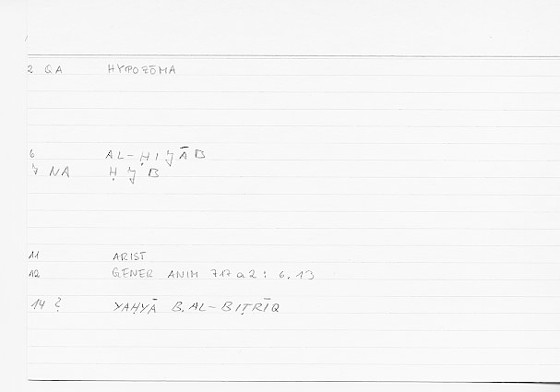 2 QA HYPOZŌMA
6 AL-ḤIJ̌ĀB
NA ḤJ̌B
11 ARIST
12 GENER ANIM 717 a 2 : 6.13
14 ? YAḤYĀ B. AL-BIṬRĪQ